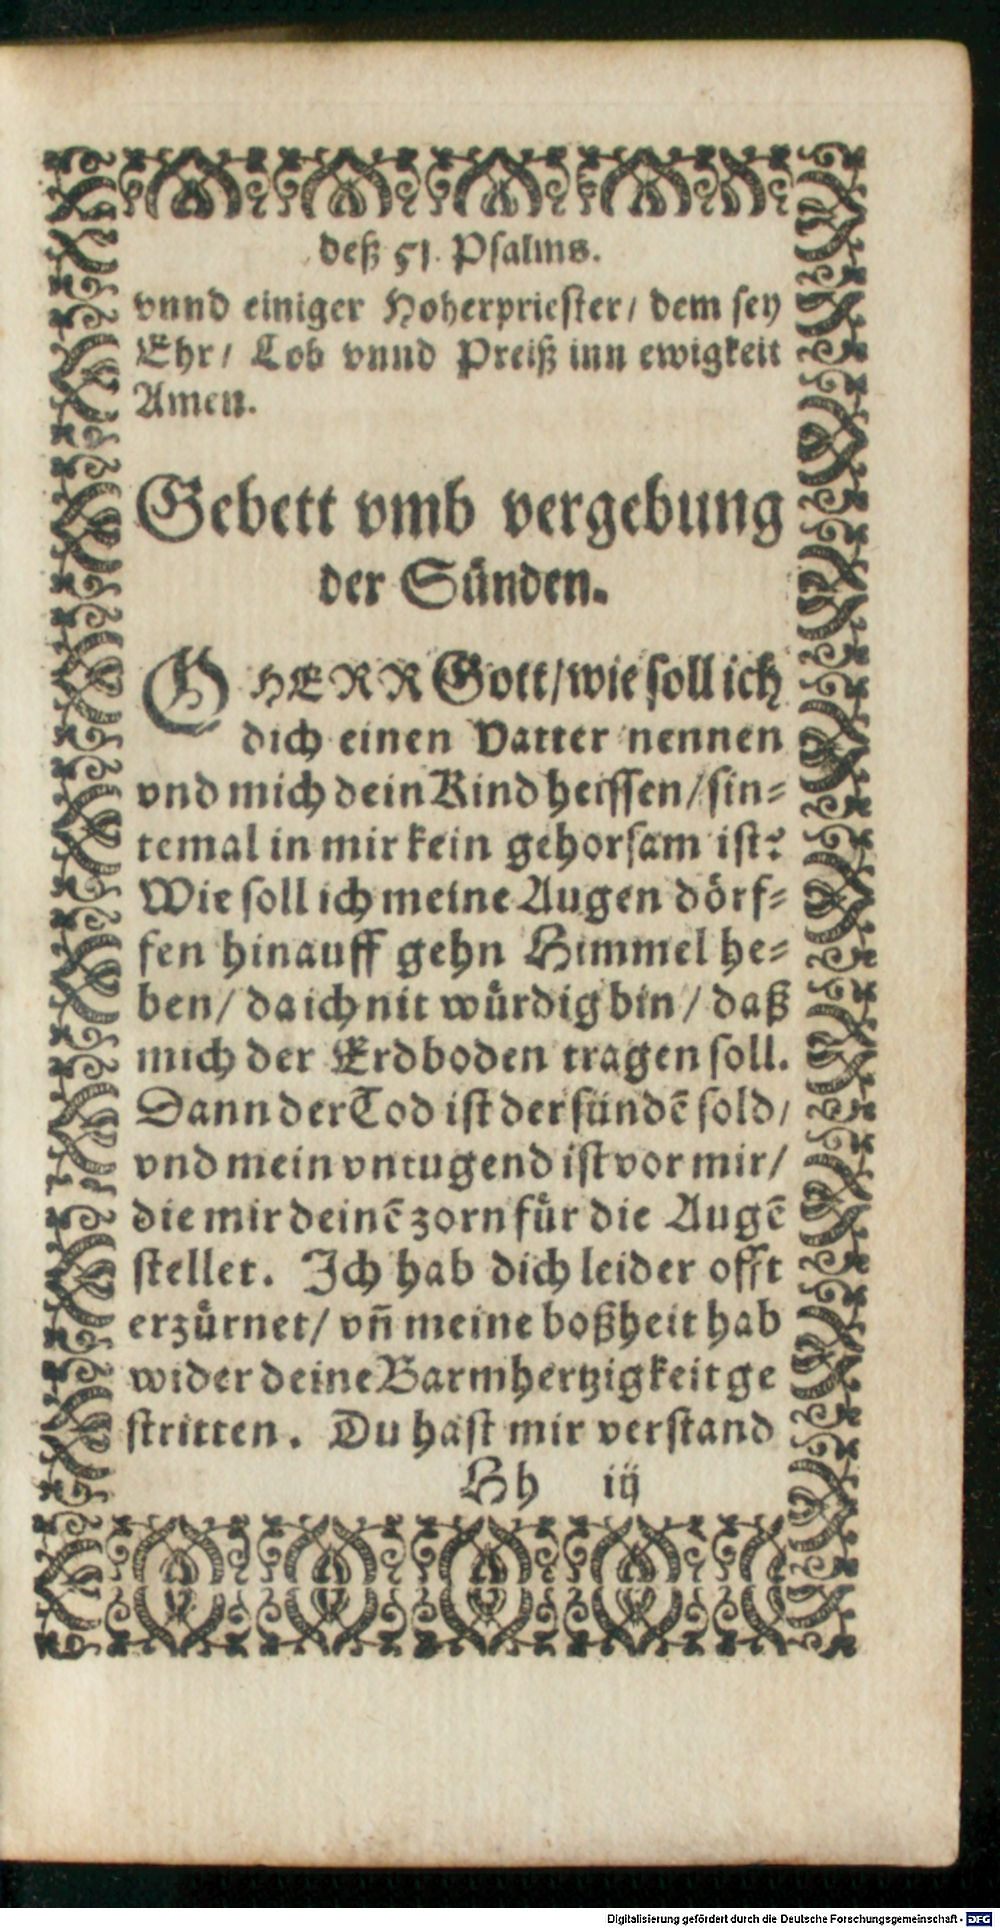 deß 51. Psalms.
vnnd einiger Hoherpriester/ dem sey
Ehr/ Lob vnnd Preiß inn ewigkeit
Amen.
Gebett vmb vergebung
der Sünden.
O HERR Gott/ wie soll ich
dich einen Vatter nennen
vnd mich dein Kind heissen/ sin-
temal in mir kein gehorsam ist?
Wie soll ich meine Augen dörf-
fen hinauff gehn Himmel he-
ben/ da ich nit würdig bin/ daß
mich der Erdboden tragen soll.
Dann der Tod ist der sündē sold/
vnd mein vntugend ist vor mir/
die mir deinē zorn für die Augē
stellet. Ich hab dich leider offt
erzürnet/ vñ meine boßheit hab
wider deine Barmhertzigkeit ge
stritten. Du hast mir verstand
Hh iij
Digitalisierung gefördert durch die Deutsche Forschungsgemeinschaft - DFG